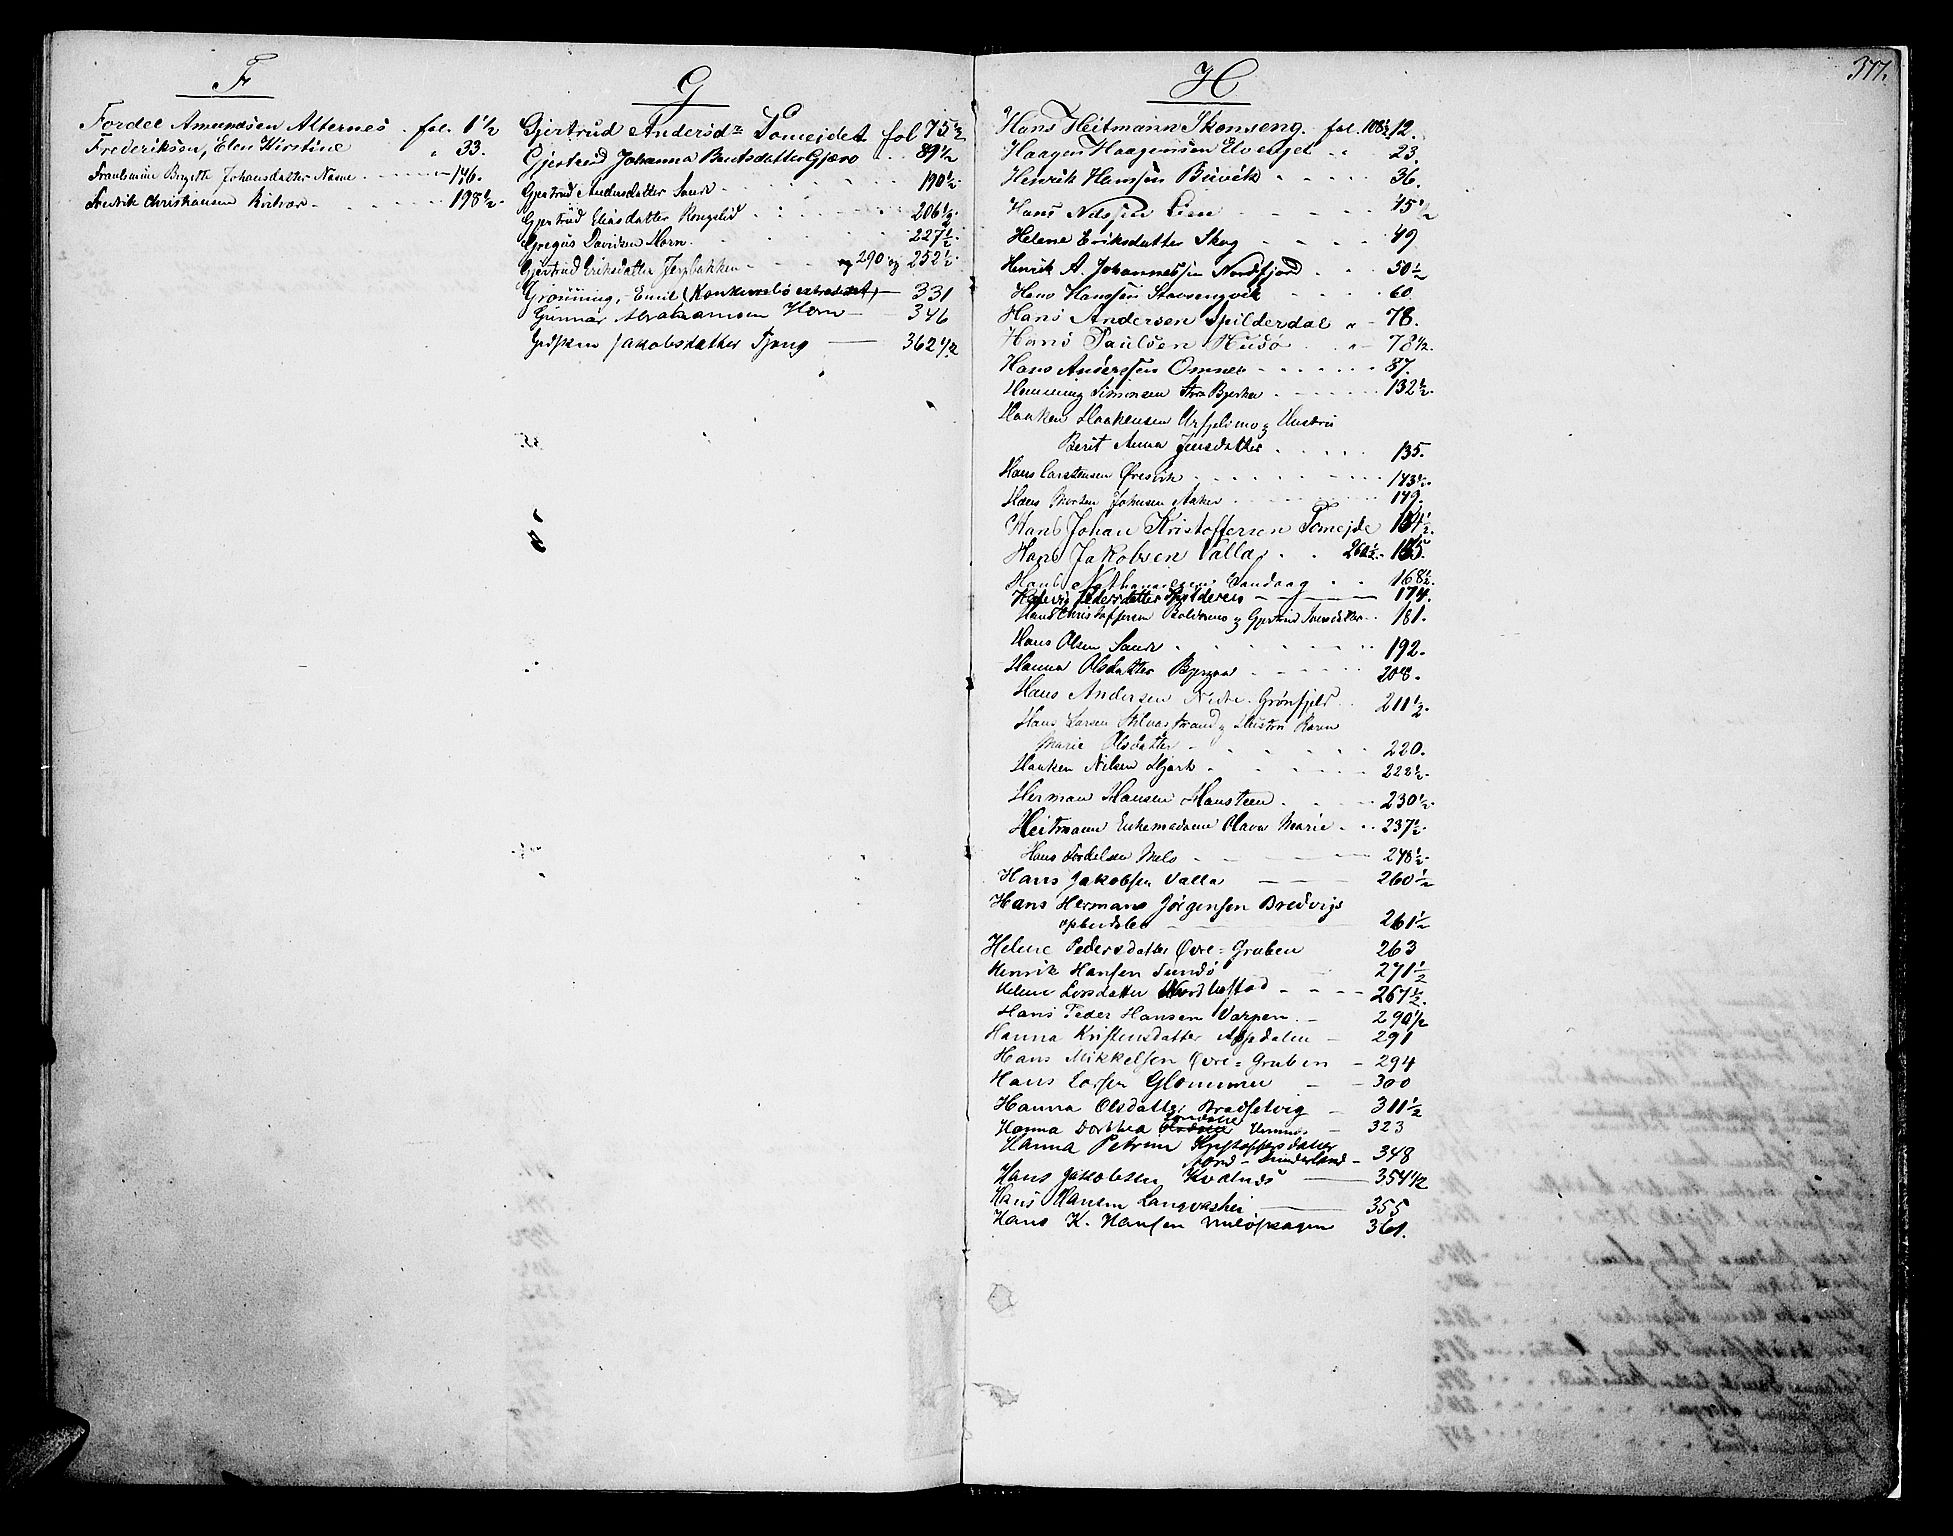 377.
F
Fordel Amundsen Alternes . fol. 1 1/2
Frederiksen, Elen Kirstine " 33.
Birgitte Johansdatter Nasne 146.
Fredrik Christiansen 198 1/2
G
Gjertrud Andersd. Tomejdet fol 75 1/2
Gjertrud Johanna Bentsdatter Gjæro 89 1/2
Gjertrud Andersdatter Sande 190 1/2
Gjertrud Eliasdatter Rongelid 206 1/2
Gregus Davidsen Horn 227 1/2
Gjertrud Eriksdatter Jerpbakken og 290 og 252 1/2
Grønning, Emil (Konkursbo extraderet) 331
Gunnar Abrahamsen Horn 346
Gidsken Jakobsdatter Tjong 362 1/2
H
Hans Heitmann Skonseng. fol. 108 1/2 12.
Haagen Haagensen Elvenget 23.
Henrik Hansen Buvik 36.
Hans Nilssen Lien 45 1/2
Helene Eriksdatter Skog 49
Henrik A. Johannessen Nordfjord 50 1/2
Hans Hanssen Stavsengvik 60
Hans Andersen Spilderdal " 78.
Hans Paulsen Husø " 78 1/2.
Hans Anderssen Omnes 87.
Henning Simonsen Stor Bjerka 132 1/2.
Haaken Haakensen Urfjeldmo og Hustru
Berit Anna Jensdatter 135.
Hans Carstensen Øresvik 143 1/2.
Hans Morten Johnsen Aaker 149.
Hans Johan Kristoffersen Tomejde 154 1/2.
Hans Jakobsen Valla 260 1/2. 155.
Hans Nathanaelsen Vandaag 168 1/2.
Hedevig Pedersdatter Spilderen 174.
Hans Christoffersen Boldermo og Gjertrud Iversdatter 181.
Hans Olsen Sande 192.
Hanna Olsdatter Bjergaa 208.
Hans Andersen Nedre Grønfjeld 211 1/2.
Hans Larsen Selvastrand og Hustru Karen
Marie Olsdatter 220.
Haaken Nilsen Hjart 222 1/2.
Herman Hansen Hansteen 230 1/2.
Heitmann Enkemadame Olava Marie 237 1/2.
Hans Tordelsen Mels 248 1/2.
Hans Jakobsen Valla 260 1/2
Hans Hermans Jørgensen Bredvigs
opherdalen 261 1/2
Helene Pedersdatter Øvre=Gruben 263
Henrik Hansen Sundø 271 1/2
Helene Larsdatter Skardhestad 267 1/2.
Hans Peder Hansen Varpen 290 1/2
Hanna Kristensdatter Aspdalen 291
Hans Mikkelsen Øvre=Gruben 294
Hans Larsen Glommen 300
Hanna Olsdatter Bradsetvig 311 1/2
Hanna Dorthea Hemnes 323
Hanna Petrine Kristoffersdatter
Nord=Dunderland 348
Hans Jakobsen Kvalnes 354 1/2
Hans Hansen Langvashei 355
Hans K. Hansen 361.